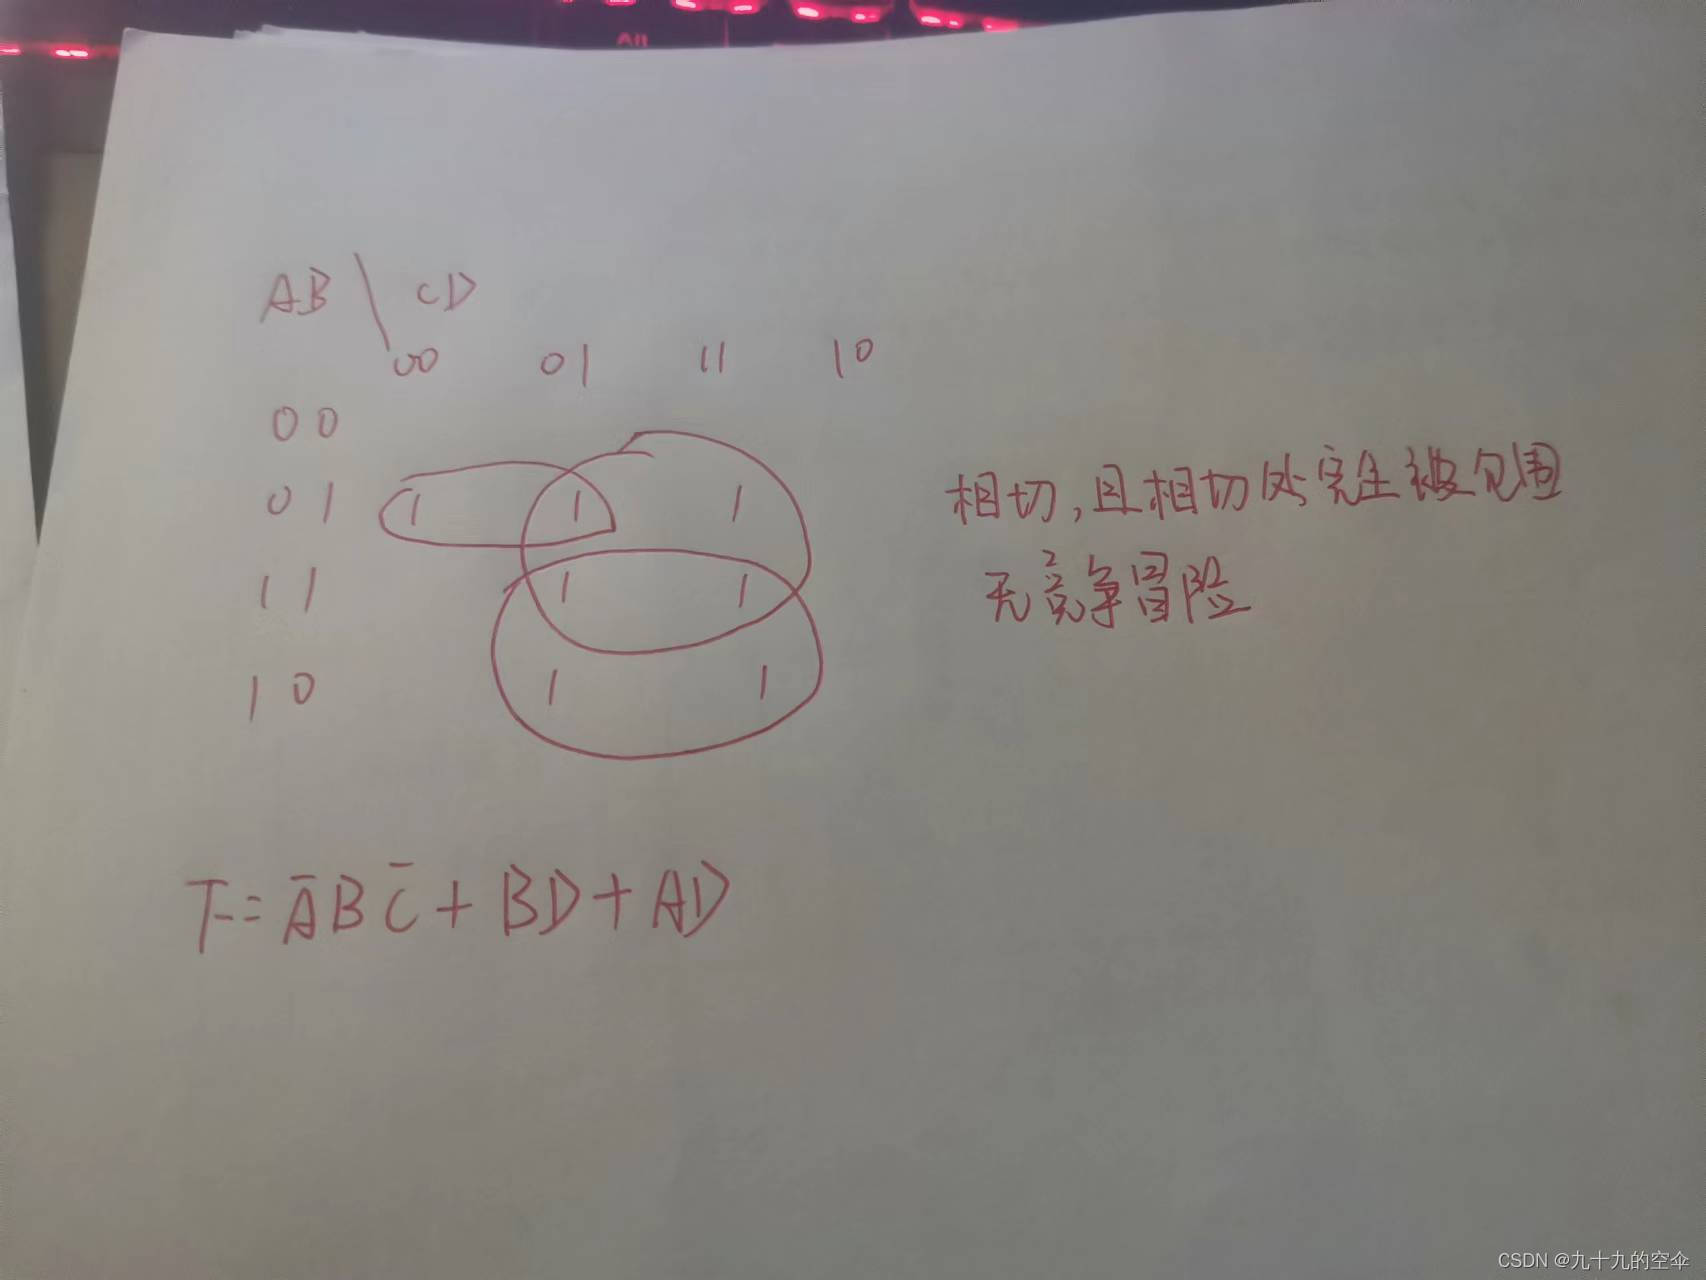 AB \ CD
00 01 11 10
00
01 1 1 1
11 1 1
10 1 1
相切,且相切处完全被包围
无竞争冒险
F=A̅BC̅+BD+AD
CSDN @九十九的空伞